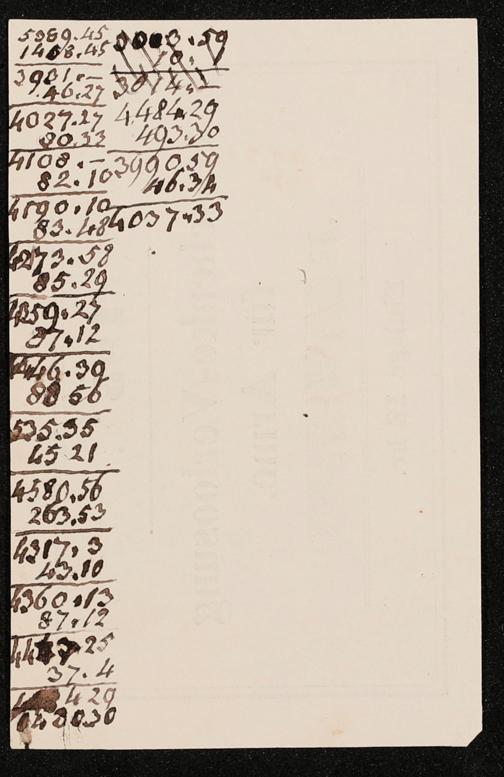 5389.45
1488.45
3901.-
46.27
4027.27
80.33
4108.-
82.10
4190.10
83.48
4273.58
85.29
4359.27
87.12
4446.39
88 56
535.35
45 21
4580.56
263.53
4317.3
43.10
4360.13
87.12
25
37.4
429
48030
3003.59
10.
3014.-
4484.29
493.30
3990.59
46.34
4037.33